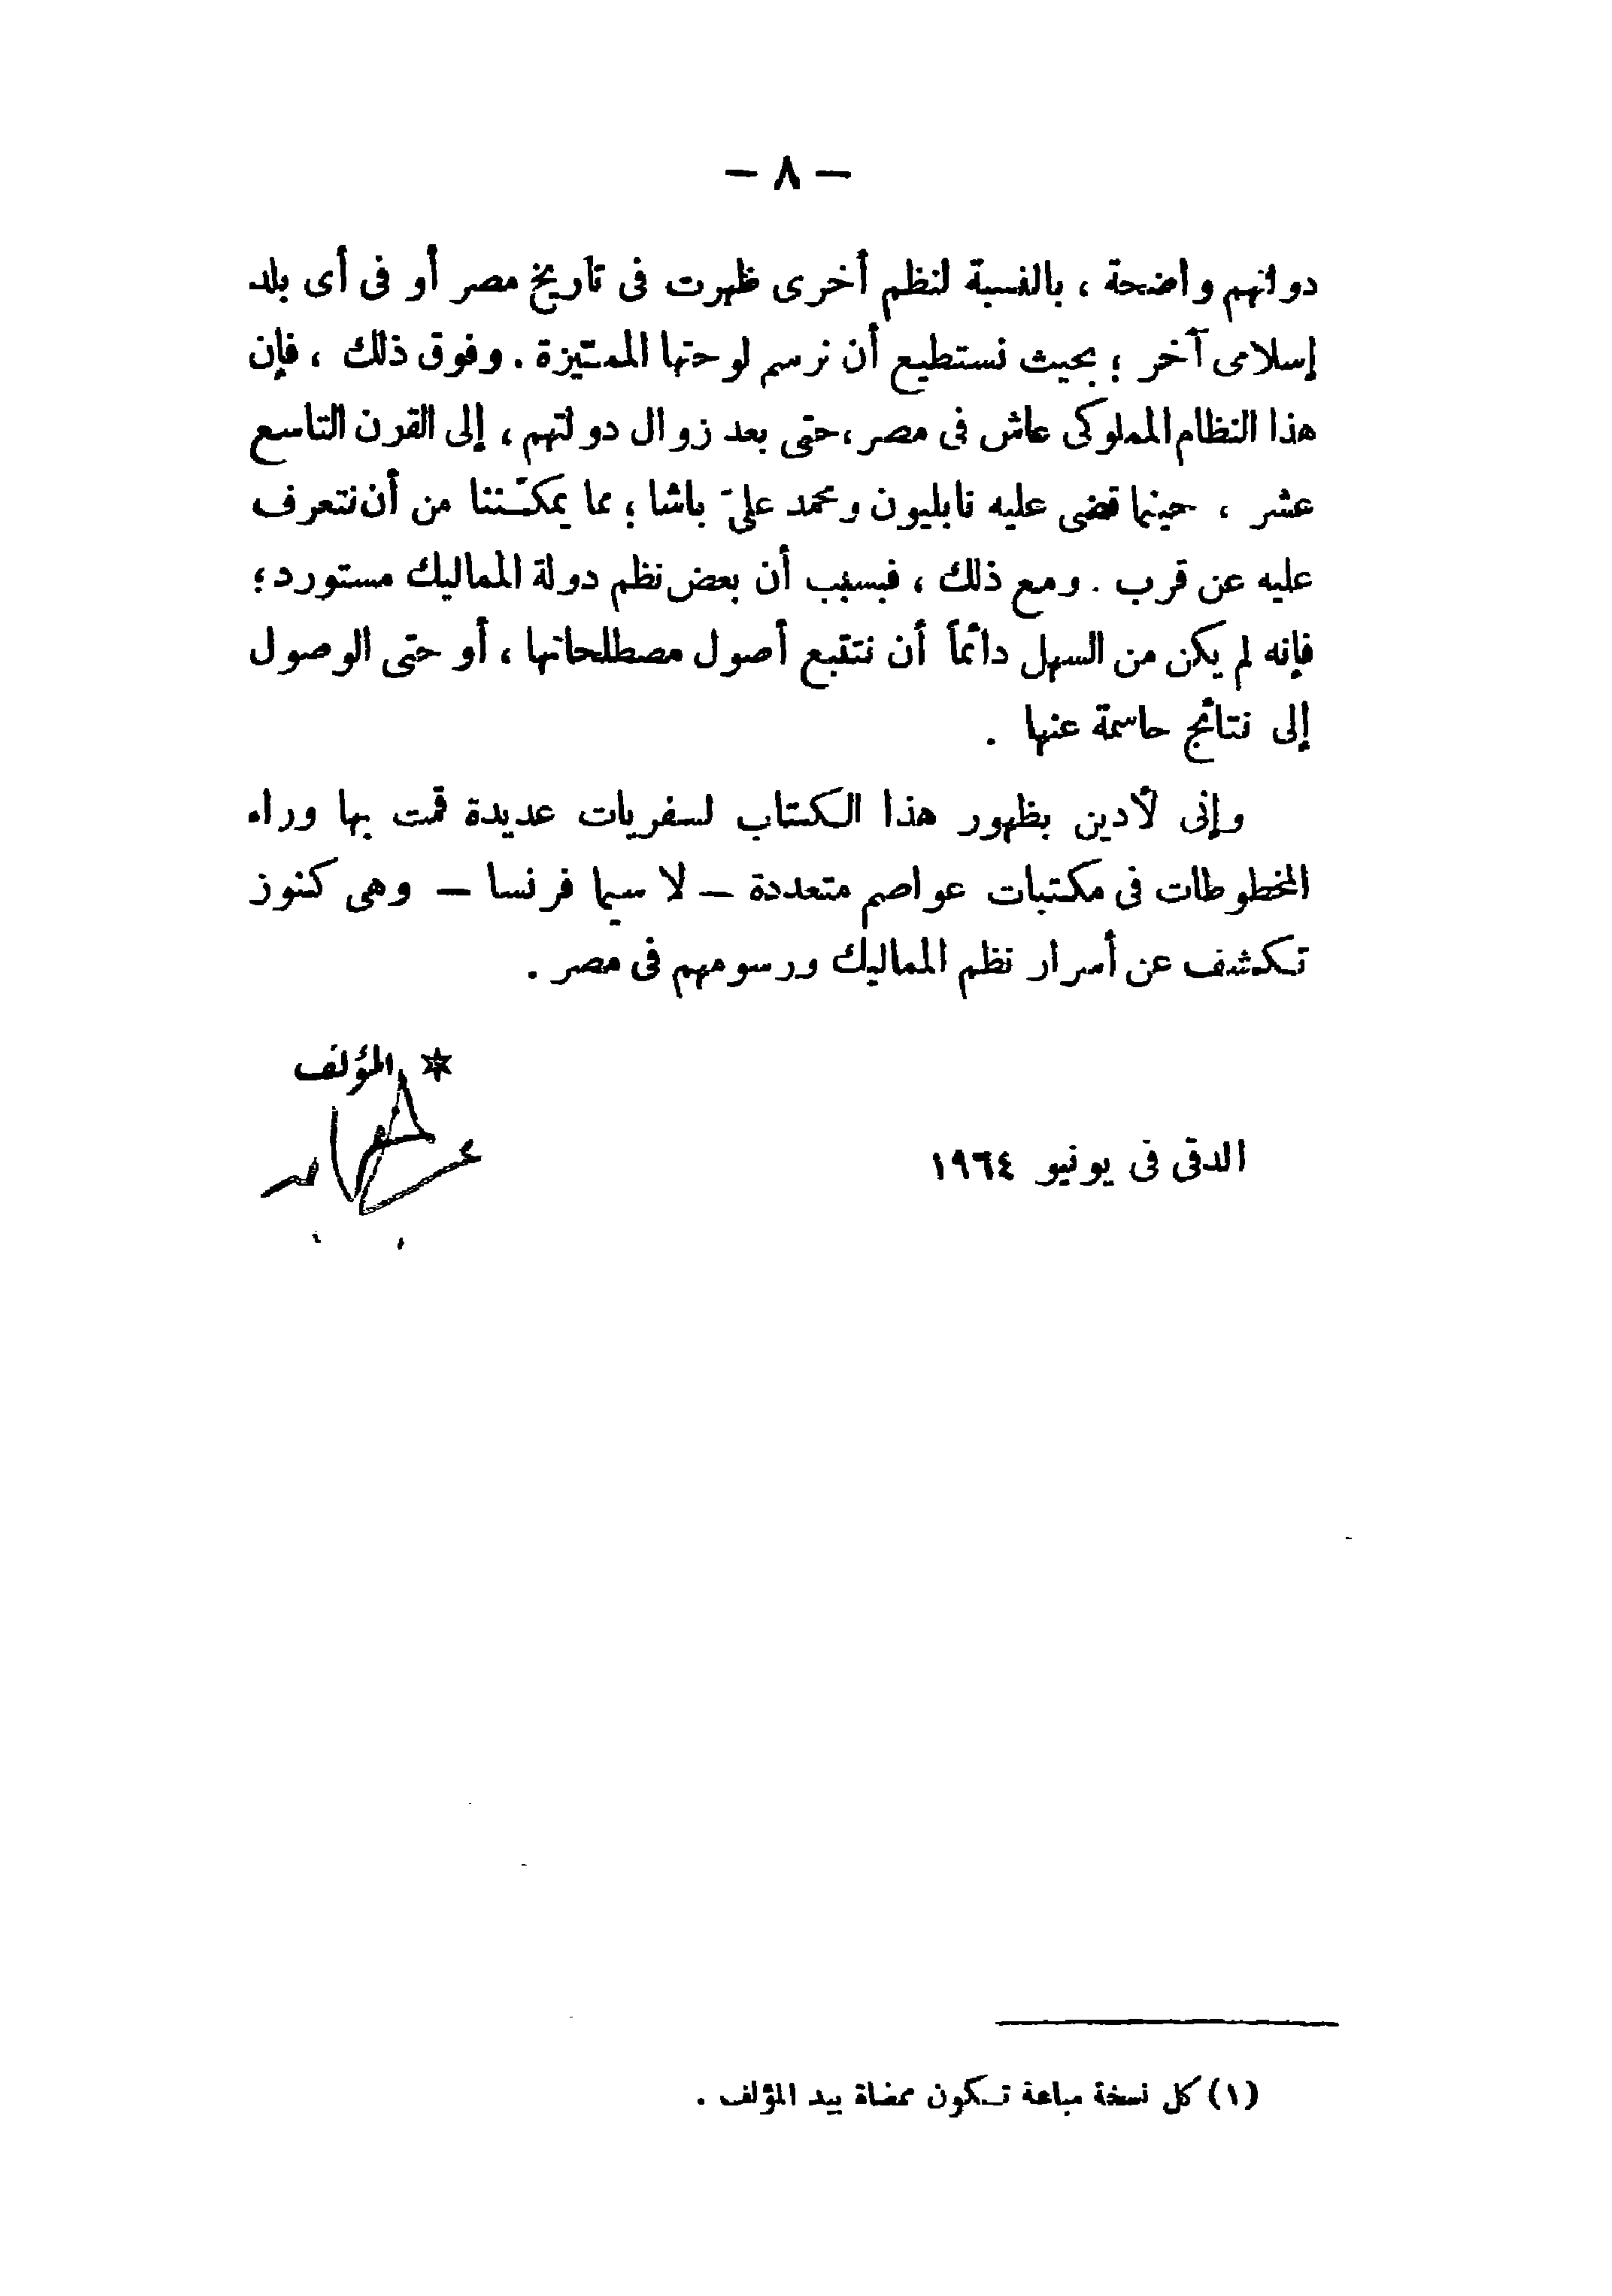 — ٨ —
دولتهم واضحة ، بالنسبة لنظم أخرى ظهرت فى تاريخ مصر أو فى أى بلد
إسلامى آخر ؛ بحيث نستطيع أن نرسم لوحتها المميّزة . وفوق ذلك ، فإن
هذا النظام المملوكى عاش فى مصر ، حتى بعد زوال دولتهم ، إلى القرن التاسع
عشر ، حينما قضى عليه نابليون ومحمد علىّ باشا ؛ مما يمكّننا من أن نتعرف
عليه عن قرب . ومع ذلك ، فبسبب أن بعض نظم دولة المماليك مستورد ؛
فإنه لم يكن من السهل دائماً أن نتتبع أصول مصطلحاتها ، أو حتى الوصول
إلى نتائج حاسمة عنها .
وإنى لأدين بظهور هذا الكتاب لسفريات عديدة قمت بها وراء
المخطوطات فى مكتبات عواصم متعددة — لا سيما فرنسا — وهى كنوز
تكشف عن أسرار نظم المماليك ورسومهم فى مصر .
* المؤلف
الدقى فى يونيو ١٩٦٤
(١) كل نسخة مباعة تكون ممضاة بيد المؤلف .